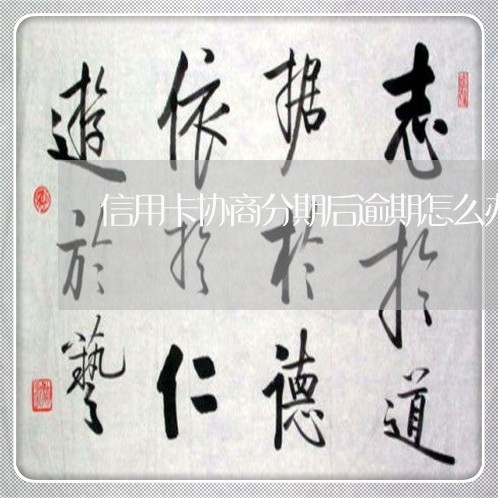 志於道
据於德
依於仁
遊於藝
信用卡协商分期后逾期怎么办